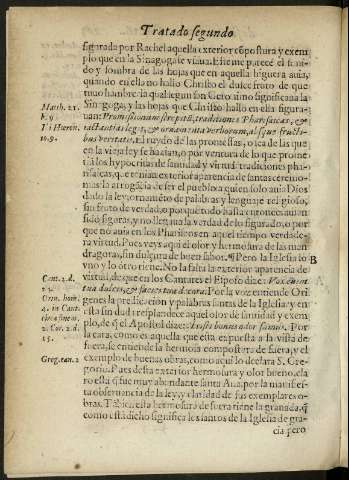 Tratado segundo
figurada por Rachel aquella exterior cõpostura y exem
plo que en la Sinagoga se viaua. Este me parece el senti
do y sombra de las hojas que en aquella higuera auia,
quando en ella no hallo Christo el dulce fruto de que
tuuo hambre: la qual segun san Geronimo significaua la
Math. 21.
Sinagoga, y las hojas que Christo hallo en ella figura-
uan: traditiones Pharisaicas, &
iactantias legis, & ornamenta verborum, absque fructi-
bus veritatis. El ruydo de las promessas, o
en la vieja ley se hazian, o por ventura de lo que prome
tia los hypocritas de santidad y virtud: tradiciones pha-
risaicas, que tenian exterior aparencia de santas ceremo-
nias: la arrogácia de ser el pueblo a quien solo auia Dios
dado la ley, ornamẽto de palabras y lenguaje religioso,
sin fruto de verdad, o porque todo hasta entonces auian
sido figuras, y no llegaua la verdad de lo figurado, o por
que no auia en los Phariseos en aquel tiempo verdade-
ra virtud. Pues veys aqui el olor y hermosura de las man
dragoras, sin dulçura de buen sabor. ¶ Pero la Iglesia lo
B
vno y lo otro tiene. No la falta la exterior aparencia de
Cant. 2. d.
virtud, de que en los Cantares el Esposo dize: Vox enim
tua dulcis, & facies tua decora. Por la voz entiende Ori
Orig. hom.
genes la predicacion y palabras santas de la Iglesia y en
4. in Cant
esta sin duda resplandece aquel olor de santidad y exem
plo, de q̃ el Apostol dize: Christi bonus odor sumus. Por
2. Cor. 2. d.
15.
la cara, como es aquella que esta expuesta a la vista de
fuera, se entiende la hermosa compostura de fuera, y el
Greg. can. 2
exemplo de buenas obras, como aqui lo declara S. Gre-
gorio. Pues desta exterior hermosura y olor bueno, cla
ro esta q̃ fue muy abundante santa Ana, por la manifies-
ta obseruancia de la ley, y claridad de sus exemplares o-
bras. Tãbien esta hermosura de fuera tiene la granada, q̃
como esta dicho significa los santos de la Iglesia de gra-
cia pero